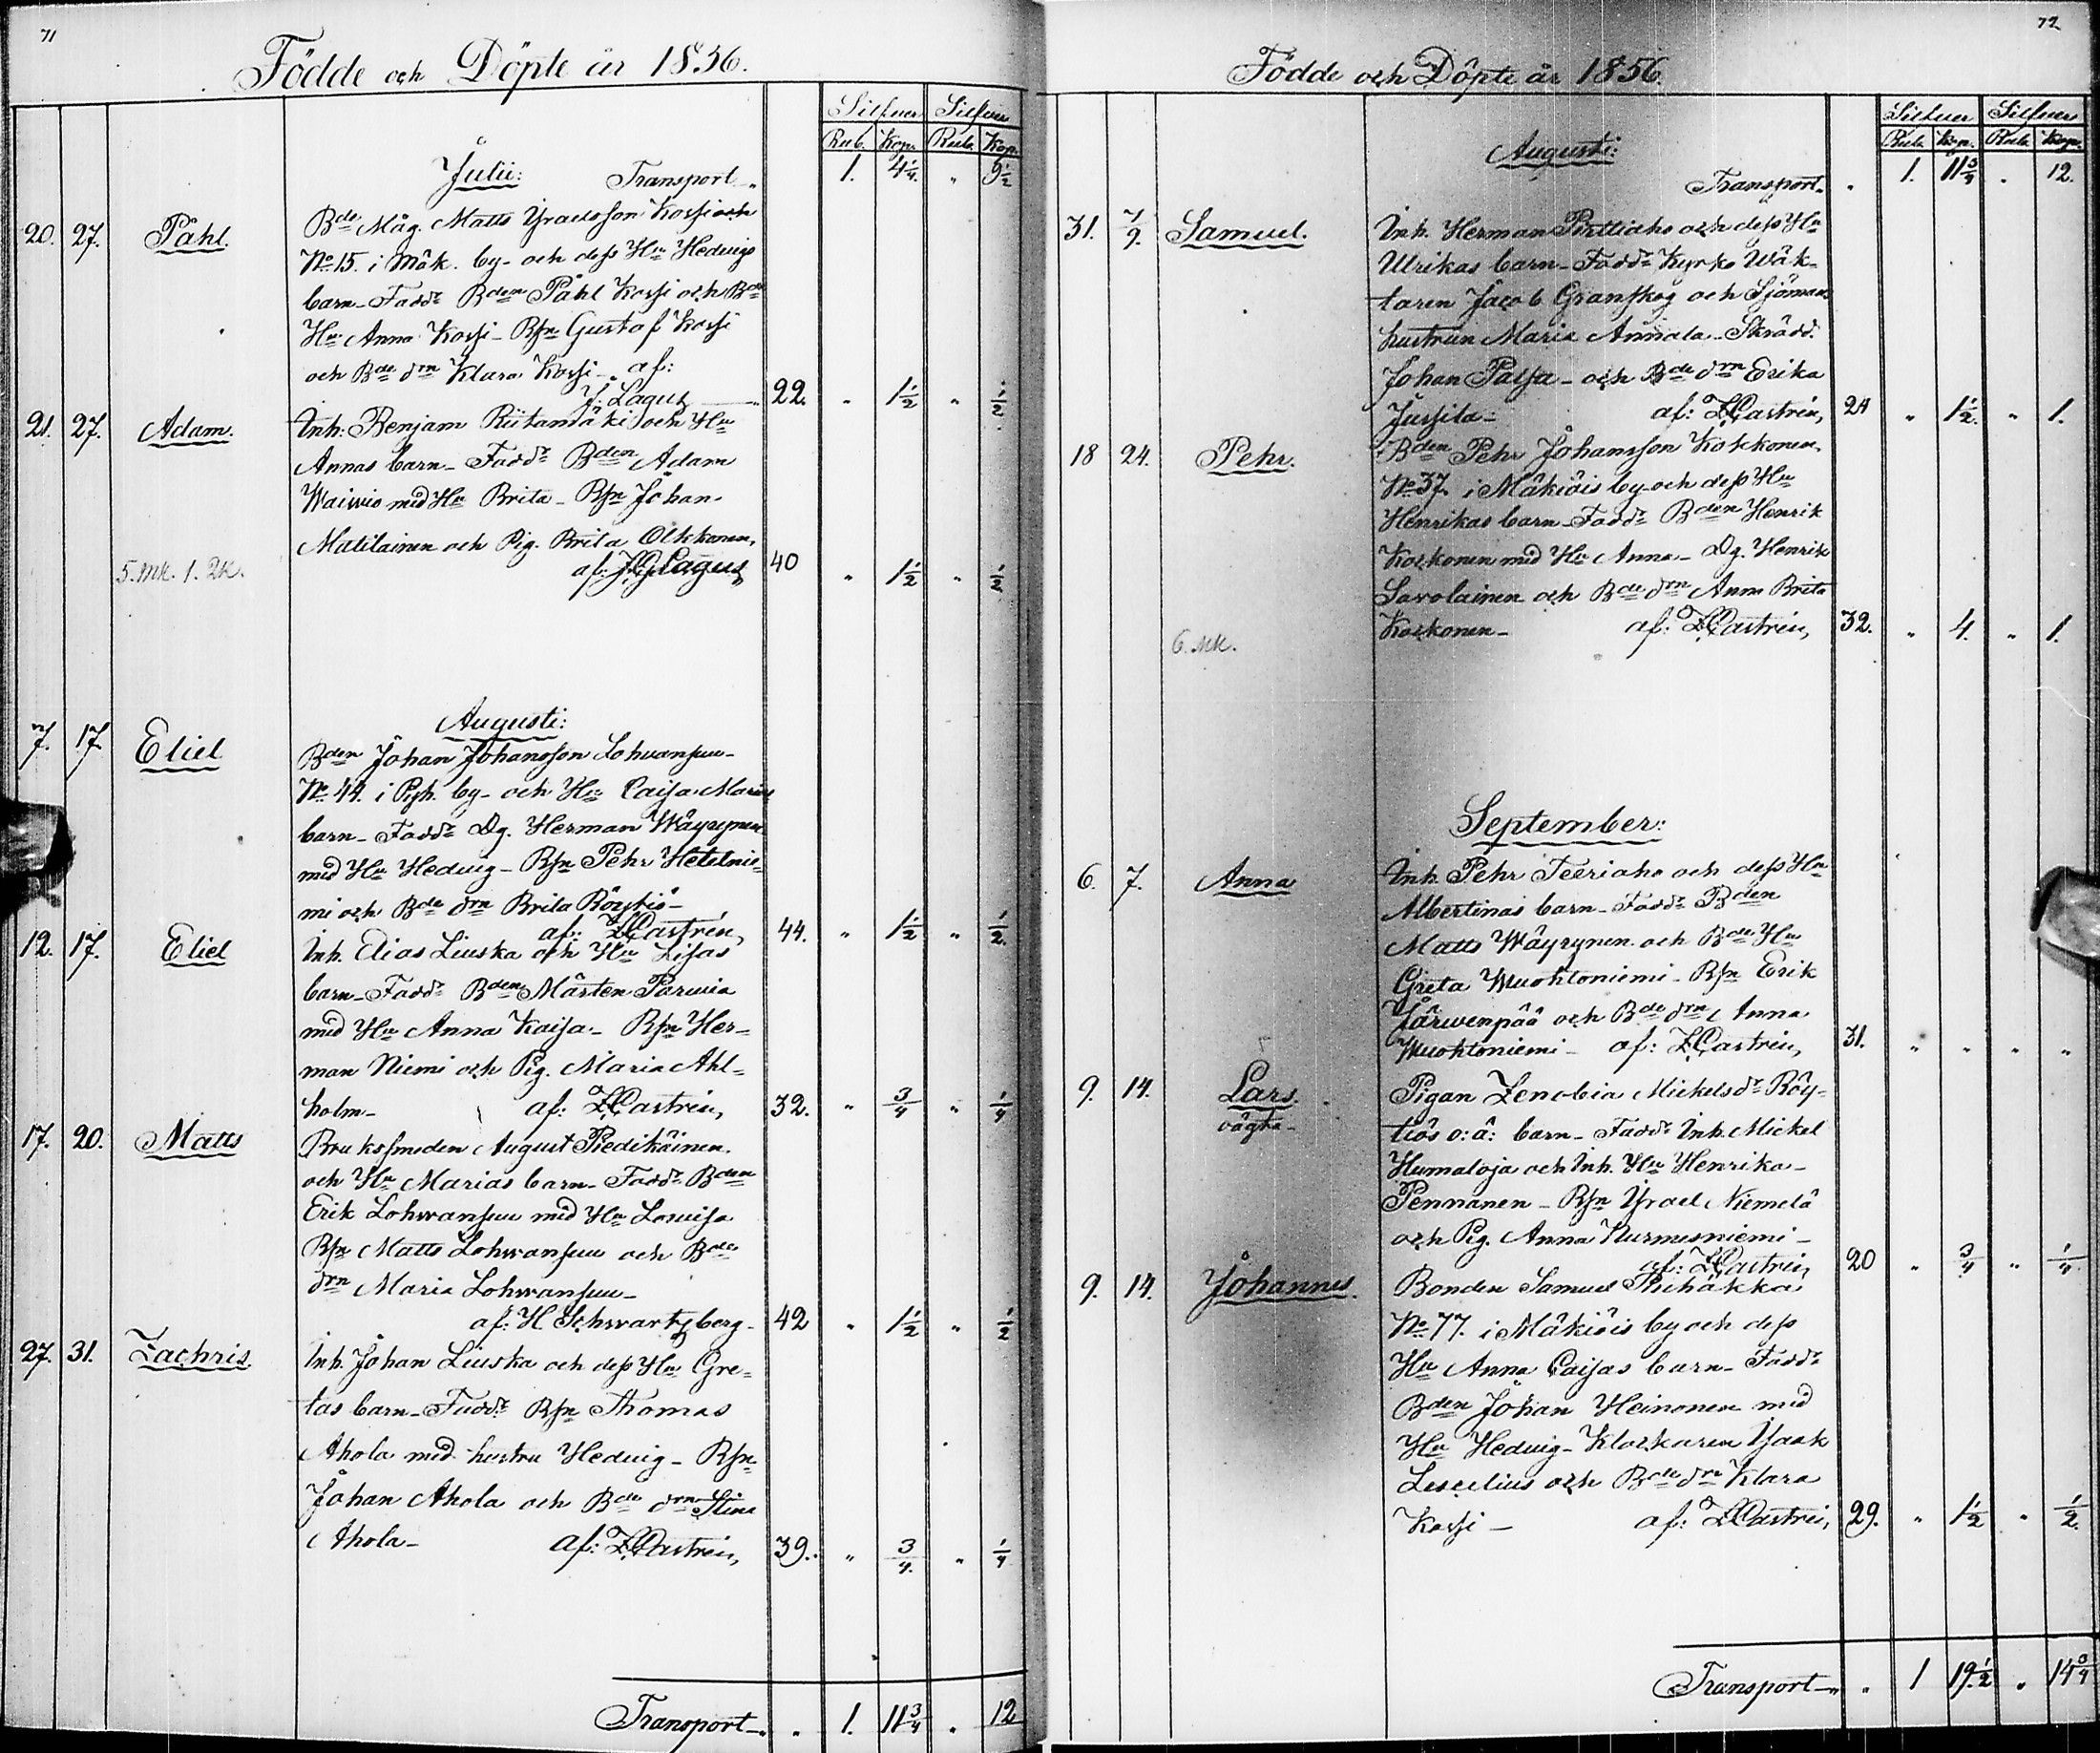 71
Födde och Döpte år 1856.
Silfver Silfver
Rub. Kop. Rub. Kop.
Julii: Transport „ 1. 4 1/4. „ 9 1/2
20. 27. Påhl. Bde Måg. Matts Ysraelsson Kossi och
No 15. i Mäk. by - och dess Hu Hedvigs
barn - Fadd: Bden Påhl Kossi och Bde
Hu Anna Kossi - Bsn Gustaf Kossi
och Bde drn Klara Kossi - af:
J. Lagus 22. „ 1 1/2 „ 1/2
21. 27. Adam. Inh: Benjam Riitamäki och Hu
Annas barn - Fadd: Bden Adam
Wainio med Hu Brita - Bsn Johan
Matilainen och Pig. Brita Olkkonen,
af: J.G. Lagus, 40 „ 1 1/2 „ 1/2
5. MK. 1. 2K.
Augusti:
7. 17. Eliel Bden Johan Johansson Lohvansuu -
No 44. i Pyh. by - och Hu Caisa Marias
barn - Fadd: Dg. Herman Wäyrynen
med Hu Hedvig - Bsn Pehr Hetelnie-
mi och Bde drn Brita Röytiö -
af: Z Castrén, 44. „ 1 1/2 „ 1/2.
12. 17. Eliel Inh. Elias Liuska och Hu Lisas
barn - Fadd: Bden Mårten Parwia
med Hu Anna Kaisa - Bsn Her=
man Niemi och Pig. Maria Ahl=
holm - af: Z Castrén, 32. „ 3/4 „ 1/4
17. 20. Matts Bruksmeden August Piedikäinen
och Hu Marias barn - Fadd: Bden
Erik Lohwansuu med Hu Lowisa
Bsn Matts Lohwansuu och Bde
drn Maria Lohwansuu -
af: H Schwartzberg - 42 „ 1 1/2 „ 1/2
27. 31. Zachris. Inh. Johan Liuska och dess Hu Gre=
tas barn - Fadd: Bsn Thomas
Ahola med hustru Hedvig - Bsn
Johan Ahola och Bde drn Stina
Ahola - af: Z Castrén, 39. „ 3/4. „ 1/4
Transport - „ „ 1. 11 3/4 „ 12
72
Födde och Döpte år 1856.
Silfver Silfver
Rub. Kop. Rub. Kop.
Augusti:
Transport. „ 1. 11 3/4 „ 12.
31. 7/9. Samuel. Inh. Herman Perttiaho och dess Hu
Ulrikas barn - Fadd: Kyrko Wäk-
taren Jacob Granskog och Sjömans
hustrun Maria Annala - Skrädd.
Johan Palsa - och Bde drn Erika
Jussila - af: Z Castrén, 24 „ 1 1/2. „ 1.
18 24. Pehr. Bden Pehr Johansson Koskonen
No 37. i Mäkiöis by och dess Hu
Henrikas barn - Fadd: Bden Henrik
Koskonen med Hu Anna - Dg. Henrik
Savolainen och Bde drn Anna Brita
Koskonen - af: Z Castrén, 32. „ 4. „ 1.
6. MK.
September:
6. 7. Anna Inh. Pehr Teeriaho och dess Hu
Albertinas barn - Fadd: Bden
Matts Wäyrynen och Bde Hu
Greta Wuohtoniemi - Bsn Erik
Järwenpää och Bde drn Anna
Wuohtoniemi - af: Z Castrén, 31. „ „ „ „
9. 14. Lars. Pigan Zenobia Mickelsdr Röy-
oägta - tiös o: ä: barn - Fadd: Inh. Mickel
Humaloja och Inh. Hu Henrika
Pennanen - Bsn Ysrael Niemelä
och Pig. Anna Nurmesniemi -
af: Z Castrén, 20 „ 3/4 „ 1/4
9. 14. Johannes. Bonden Samuel Puhäkka
No 77. i Mäkiöis by och dess
Hu Anna Caisas barn - Fadd:
Bden Johan Heinonen med
Hu Hedvig - Klockaren Ysaak
Lescelius och Bde drn Klara
Kossi - af: Z Castrén, 29. „ 1 1/2 „ 1/2.
Transport - „ „ 1 19 1/2 „ 14 3/4